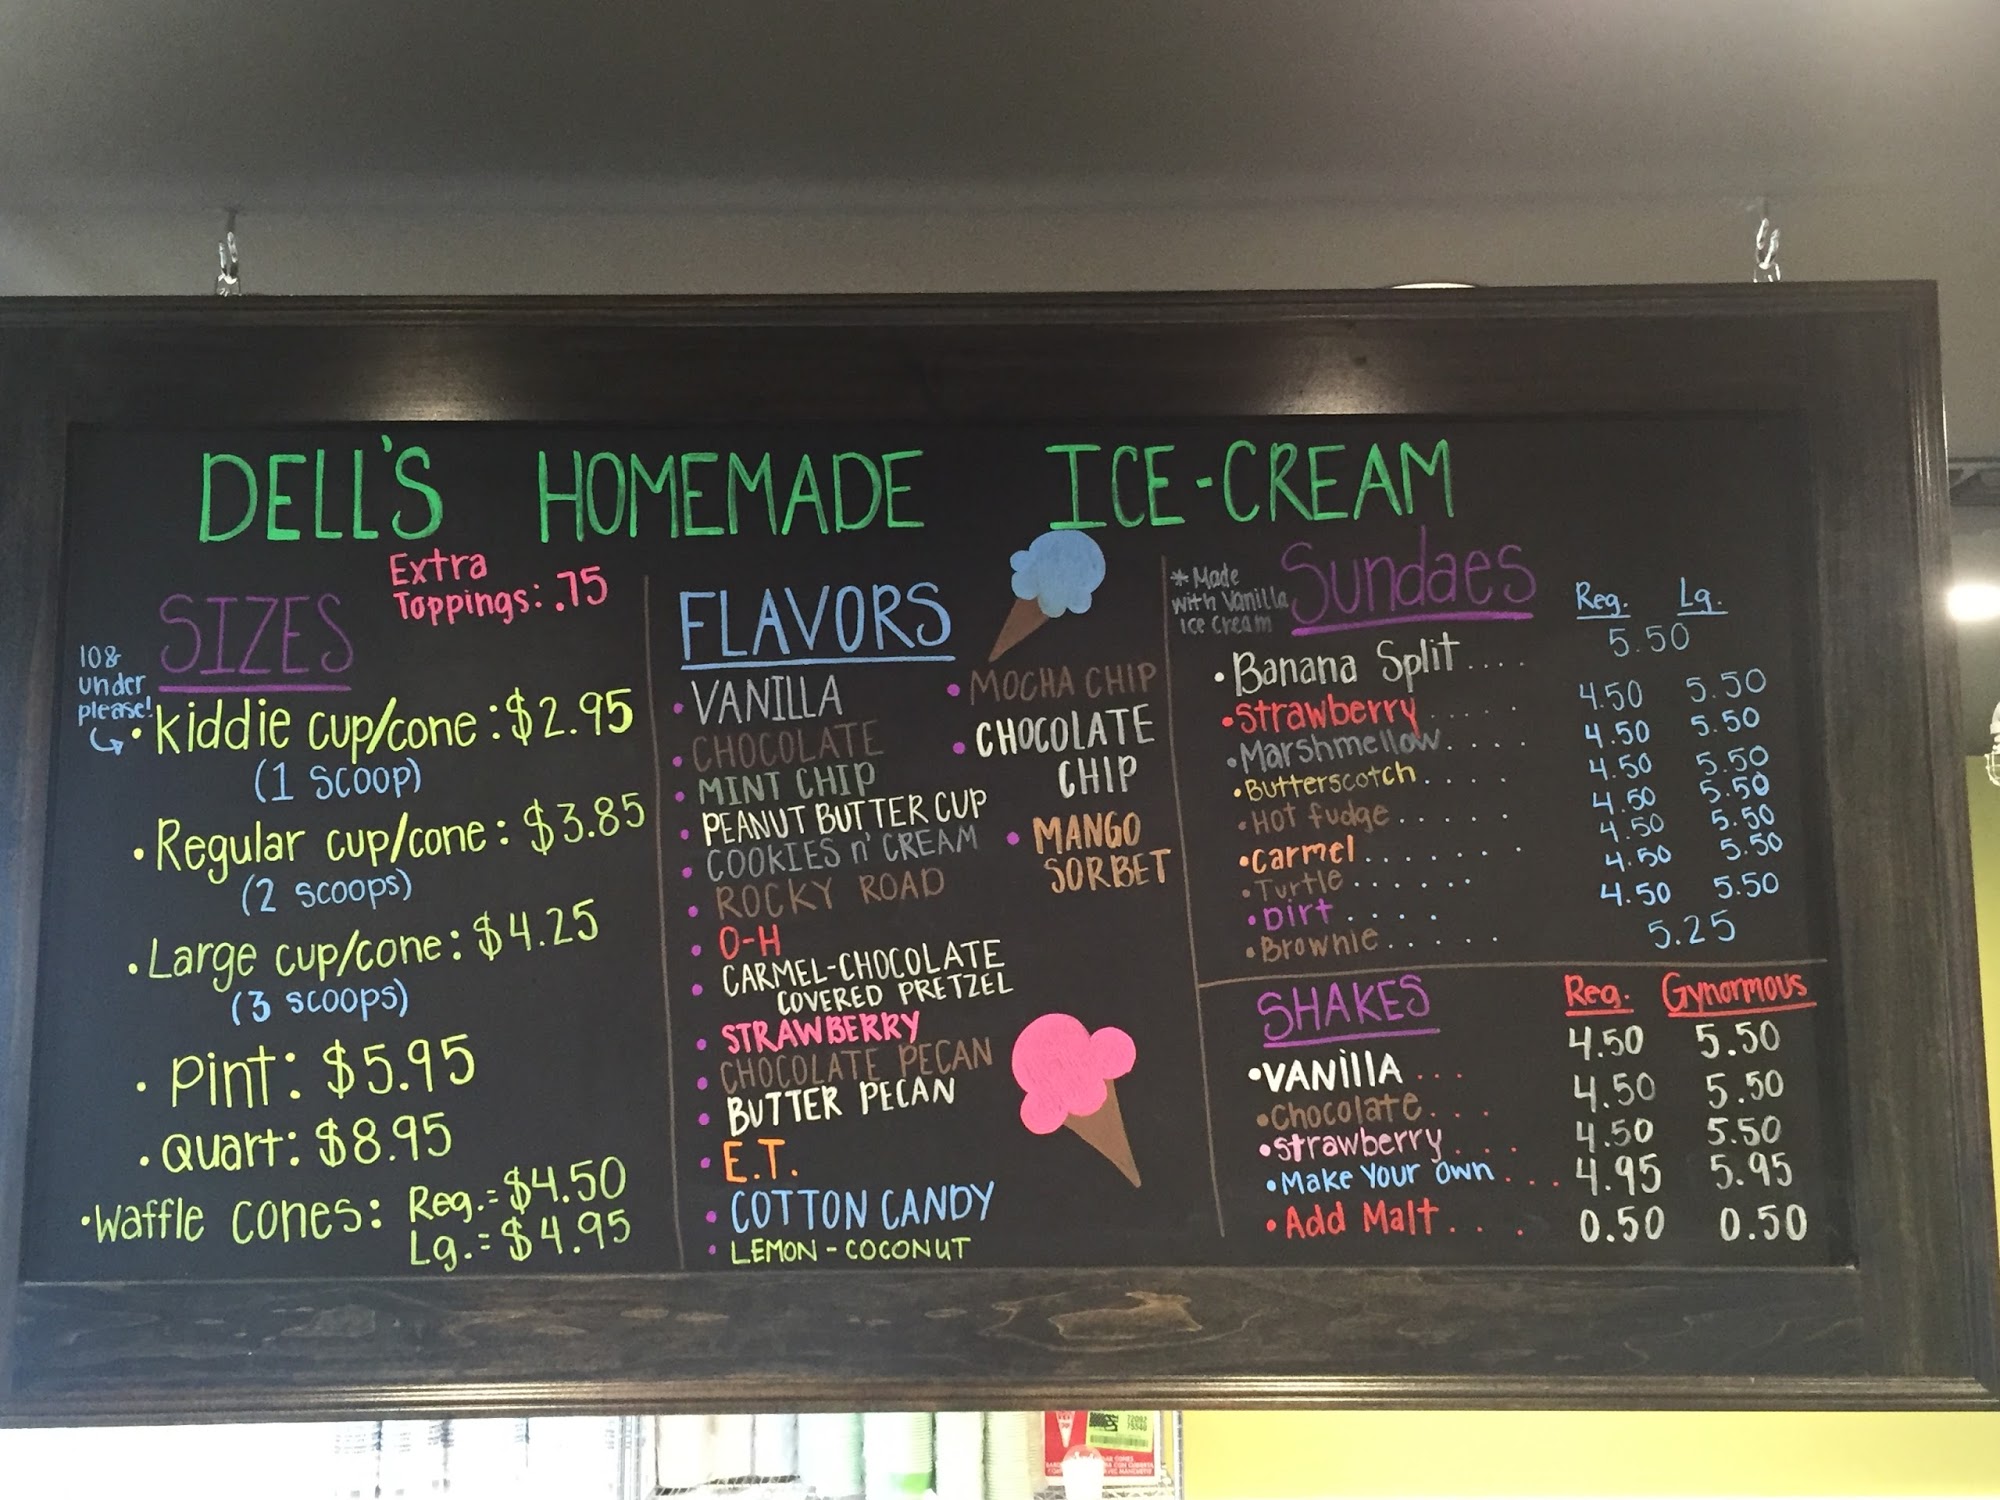 DELL'S HOMEMADE ICE-CREAM
Extra
Toppings: .75
SIZES
10 &
under
please!
• Kiddie cup/cone: $2.95
(1 SCOOP)
• Regular cup/cone: $3.85
(2 SCOOPS)
• Large cup/cone: $4.25
(3 SCOOPS)
• Pint: $5.95
• Quart: $8.95
• Waffle cones: Reg.= $4.50
Lg.= $4.95
FLAVORS
• VANILLA
• CHOCOLATE
• MINT CHIP
• PEANUT BUTTER CUP
• COOKIES n' CREAM
• ROCKY ROAD
• O-H
• CARMEL-CHOCOLATE
COVERED PRETZEL
• STRAWBERRY
• CHOCOLATE PECAN
• BUTTER PECAN
• E.T.
• COTTON CANDY
• LEMON-COCONUT
• MOCHA CHIP
• CHOCOLATE
CHIP
• MANGO
SORBET
* Made
with Vanilla
Ice Cream
Sundaes Reg. Lg.
• Banana Split.... 5.50
• Strawberry..... 4.50 5.50
• Marshmellow.... 4.50 5.50
• Butterscotch.... 4.50 5.50
• Hot fudge..... 4.50 5.50
• Carmel....... 4.50 5.50
• Turtle...... 4.50 5.50
• Dirt.... 4.50 5.50
• Brownie..... 5.25
SHAKES Reg. Gynormous
• VANilla... 4.50 5.50
• Chocolate... 4.50 5.50
• Strawberry... 4.50 5.50
• Make Your Own... 4.95 5.95
• Add Malt... 0.50 0.50